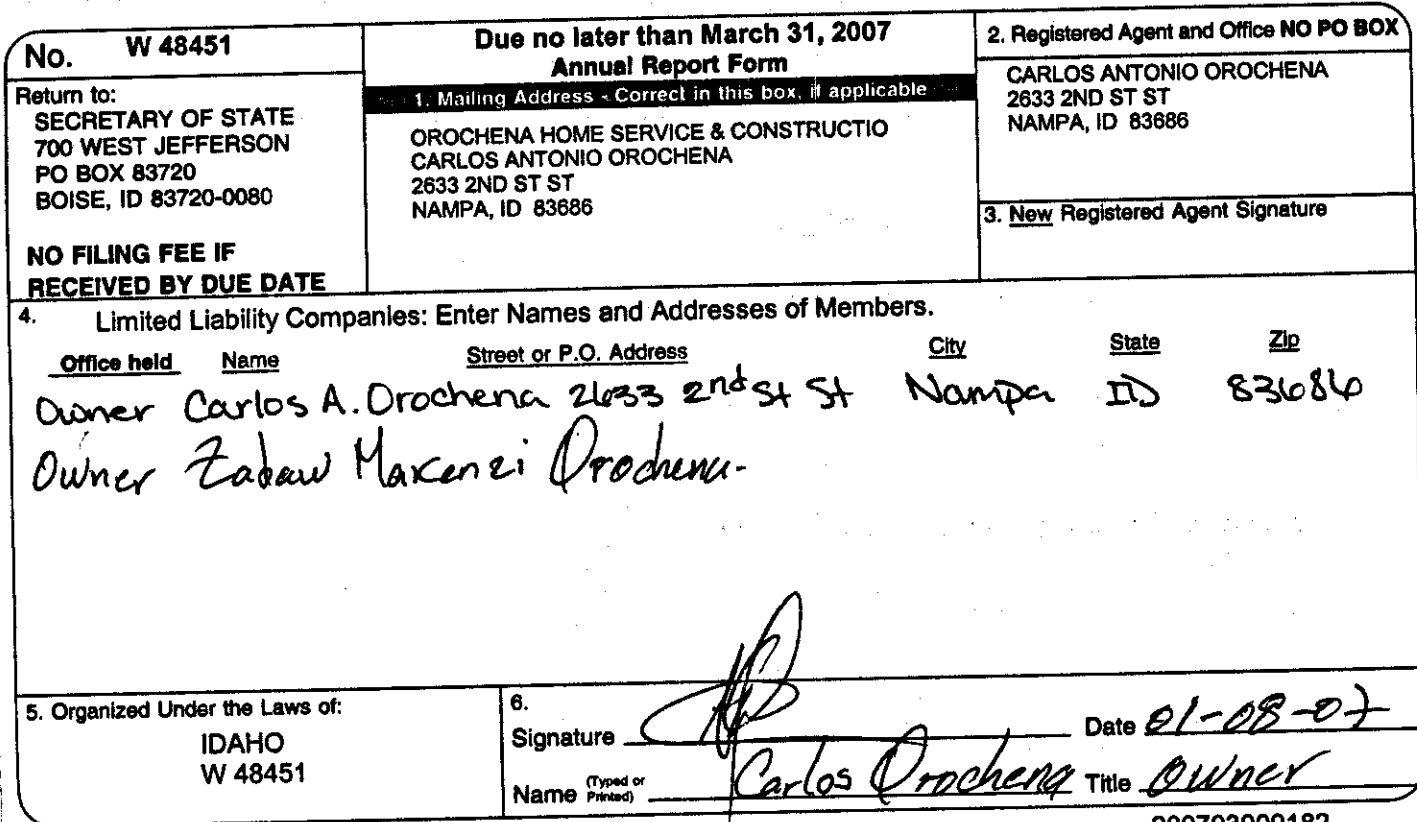 No. W 48451
Return to:
SECRETARY OF STATE
700 WEST JEFFERSON
PO BOX 83720
BOISE, ID 83720-0080
NO FILING FEE IF
RECEIVED BY DUE DATE
Due no later than March 31, 2007
Annual Report Form
1. Mailing Address - Correct in this box, if applicable
OROCHENA HOME SERVICE & CONSTRUCTIO
CARLOS ANTONIO OROCHENA
2633 2ND ST ST
NAMPA, ID 83686
2. Registered Agent and Office NO PO BOX
CARLOS ANTONIO OROCHENA
2633 2ND ST ST
NAMPA, ID 83686
3. New Registered Agent Signature
4. Limited Liability Companies: Enter Names and Addresses of Members.
Office held Name Street or P.O. Address City State Zip
Owner Carlos A. Orochena 2633 2nd St St Nampa ID 83686
Owner Makenzi Orochena
5. Organized Under the Laws of:
IDAHO
W 48451
6.
Signature Date 01-08-07
Name (Typed or Printed) Carlos Orochena Title Owner